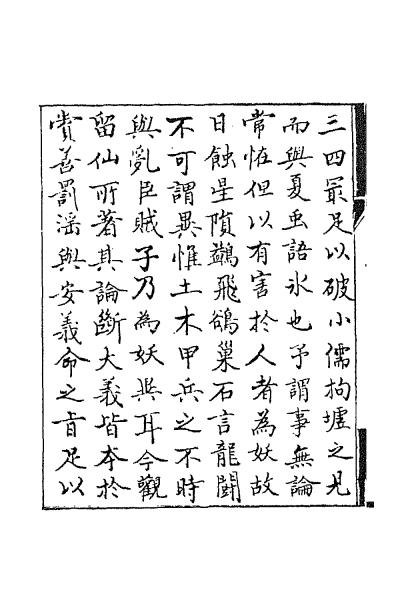 三四最足以破小儒拘墟之見
而與夏虫語氷也予謂事無論
常恠但以有害於人者為妖故
日蝕星隕鷁飛鵒巢石言龍鬭
不可謂異惟土木甲兵之不時
與亂臣賊子乃為妖異耳今觀
留仙所著其論斷大義皆本於
賞善罰淫與安義命之旨足以